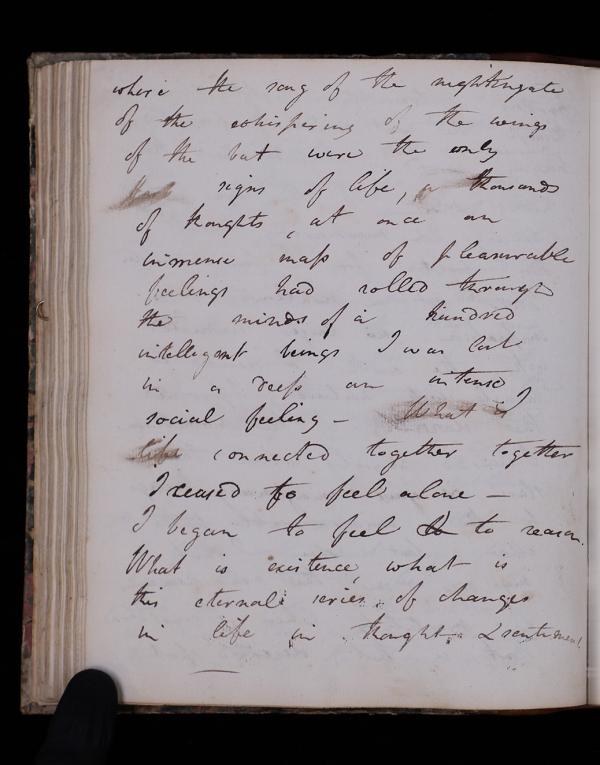 where the song of the nightingale
of the whispering of the wings
of the bat were the only
signs of life, a thousands
of thoughts, at once an
immense mass of pleasurable
feelings had rolled through
the minds of a hundred
intelligent beings I was lost
in a deep an intense
social feeling – What is
life connected together together
I ceased to feel alone –
I began to feel to reason.
What is existence, what is
this eternal series of changes
in life in thought & sentiment